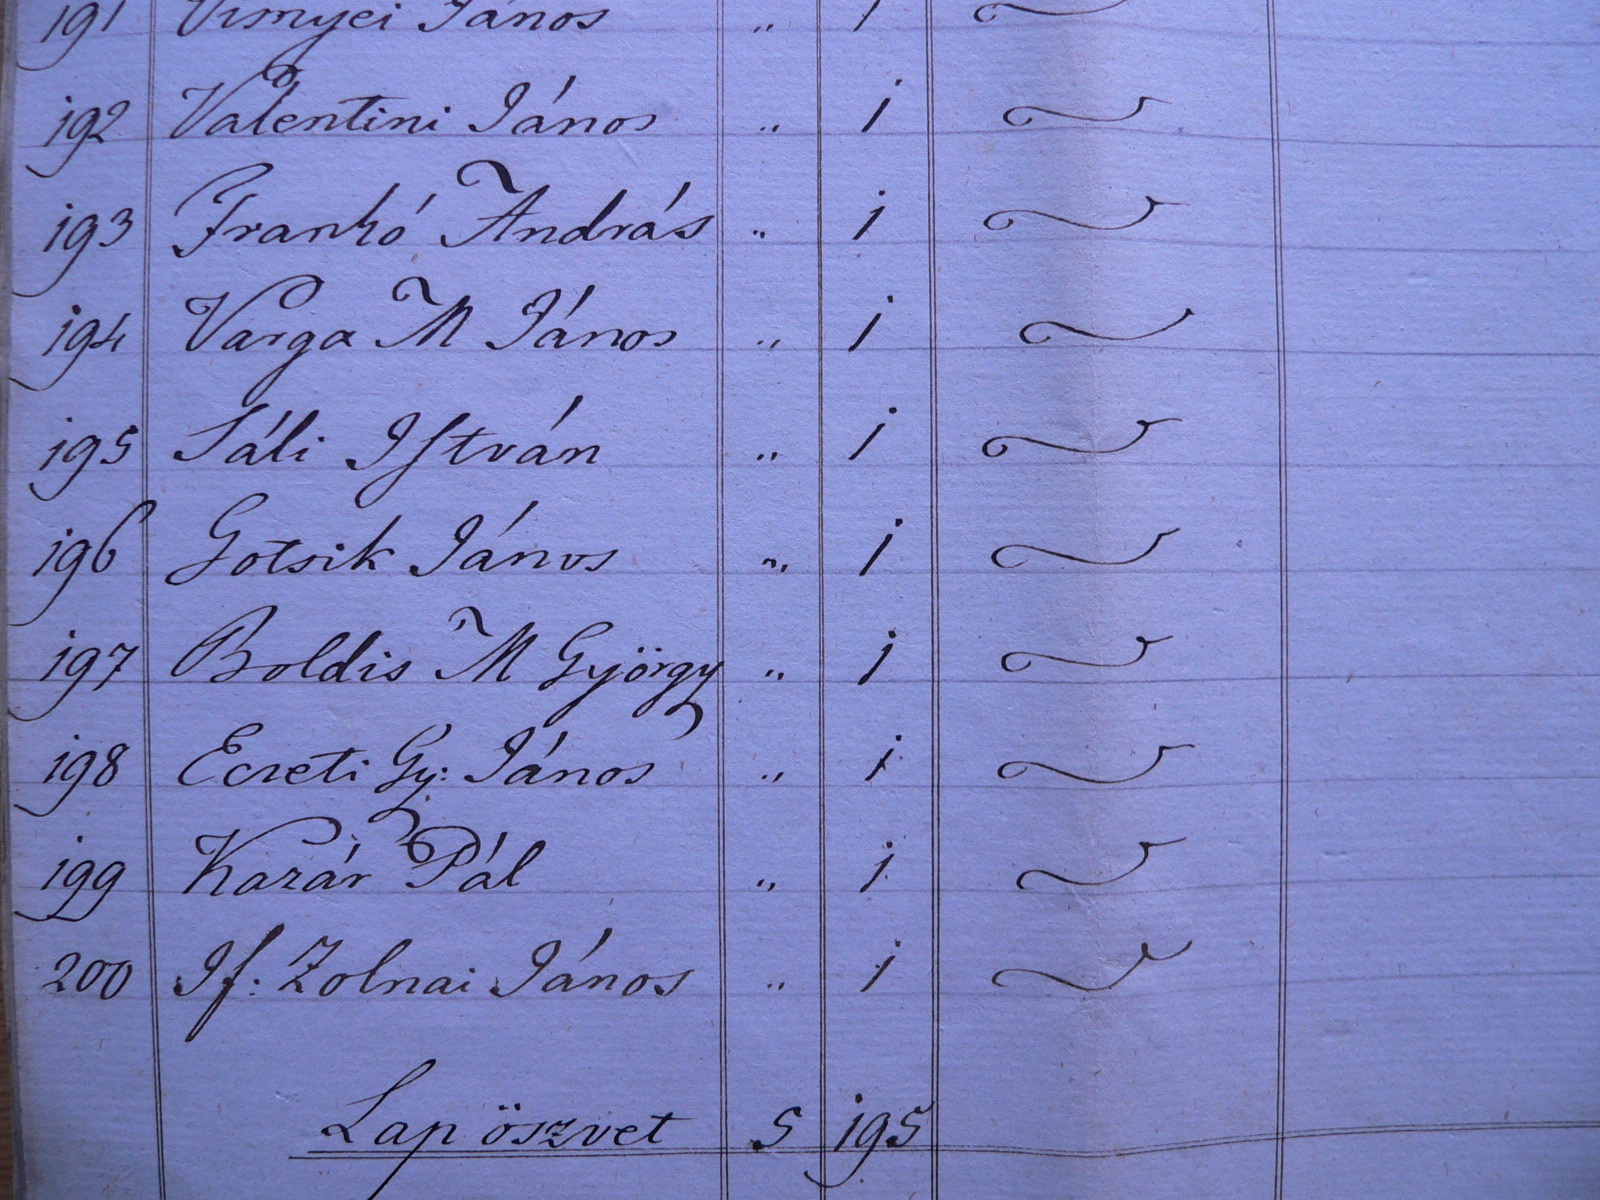 191 Virnyei János " 1
192 Valentini János " 1
193 Frankó András " 1
194 Varga M János " 1
195 Sáli István " 1
196 Gotsik János " 1
197 Boldis M György " 1
198 Ecseti Gy: János " 1
199 Kazár Pál " 1
200 If: Zolnai János " 1
Lap öszvet 5 195